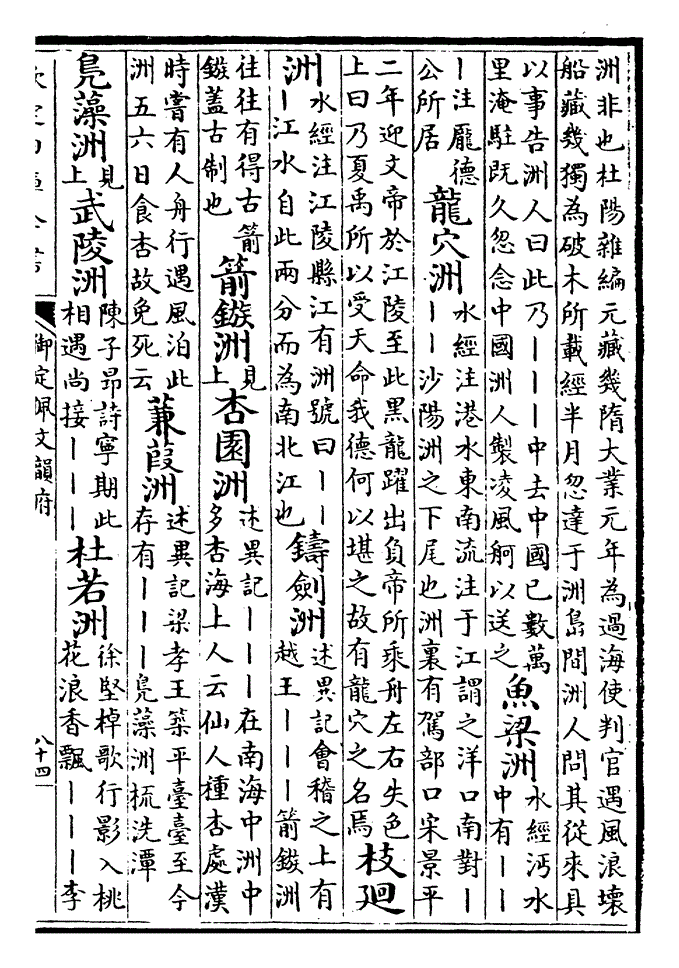 洲非也杜陽雜編元藏幾隋大業元年為過海使判官遇風浪壞
船藏幾獨為破木所載經半月忽達于洲島間洲人問其從來具
以事告洲人曰此乃丨丨丨中去中國已數萬
里淹駐既久忽念中國洲人製凌風舸以送之
魚梁洲
水經沔水
中有丨丨
丨注龐德
公所居
龍穴洲
水經注港水東南流注于江謂之洋口南對丨
丨丨沙陽洲之下尾也洲裏有駕部口宋景平
二年迎文帝於江陵至此黑龍躍出負帝所乘舟左右失色
上曰乃夏禹所以受天命我德何以堪之故有龍穴之名焉
枝廻
洲
水經注江陵縣江有洲號曰丨丨
丨江水自此兩分而為南北江也
鑄劍洲
述異記會稽之上有
越王丨丨丨箭鏃洲
往往有得古箭
鏃蓋古制也
箭鏃洲
見
上
杏園洲
述異記丨丨丨在南海中洲中
多杏海上人云仙人種杏處漢
時嘗有人舟行遇風泊此
洲五六日食杏故免死云
蒹葭洲
述異記梁孝王築平臺臺至今
存有丨丨丨鳧藻洲梳洗潭
鳧藻洲
見
上
武陵洲
陳子昂詩寧期此
相遇尚接丨丨丨
杜若洲
徐堅棹歌行影入桃
花浪香飄丨丨丨李
欽定四庫全書
御定佩文韻府
八十四